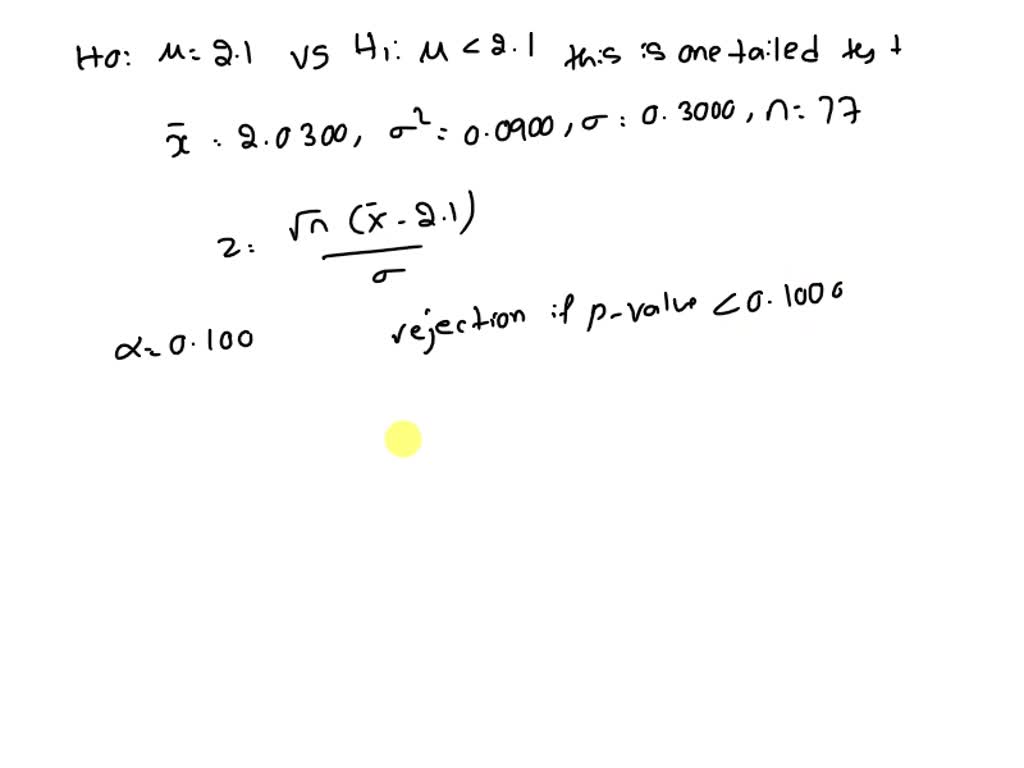 H0: μ = 2.1 vs H1: μ < 2.1 this is one tailed test
x̄ : 2.0300, σ² = 0.0900, σ : 0.3000, n = 77
z = √n (x̄ - 2.1) / σ
α = 0.100 rejection if p-value < 0.1000